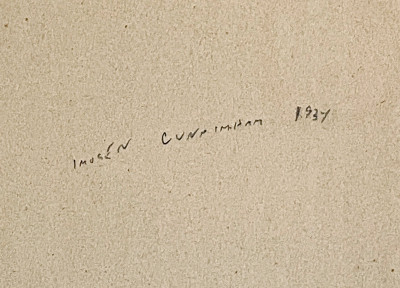 IMOGÉN CUNNINGHAM 1934